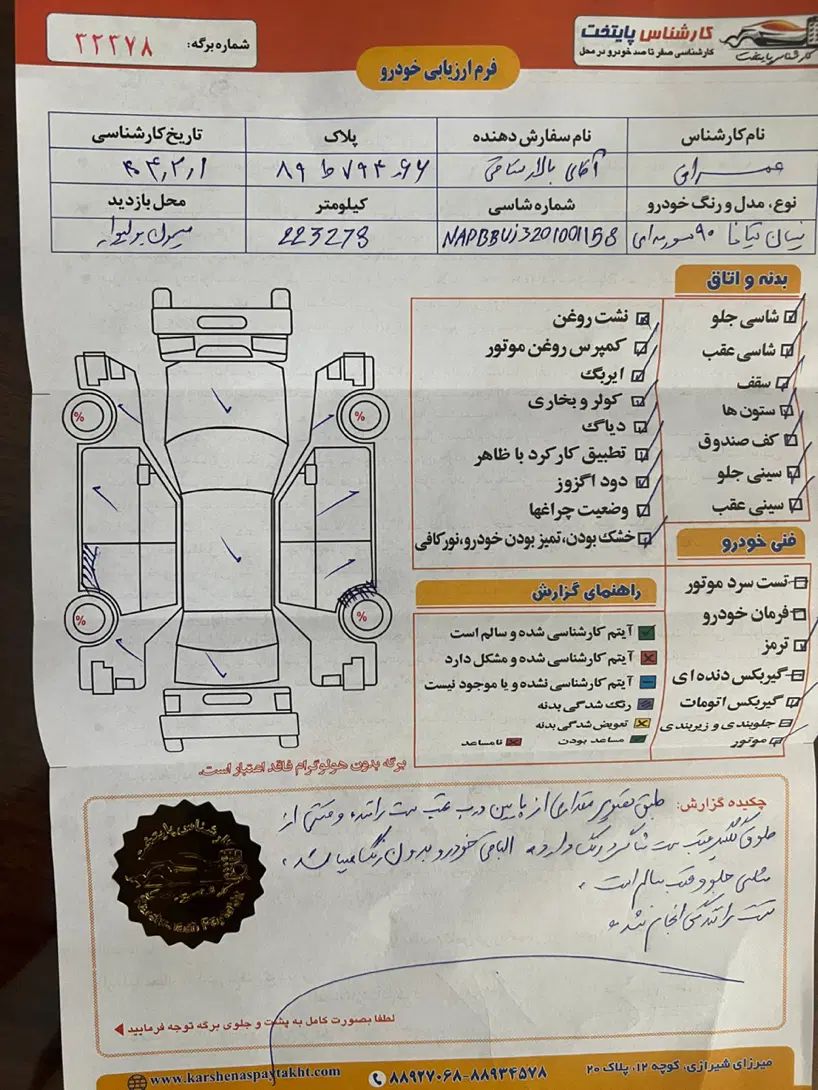 کارشناس پایتخت
کارشناسی صفر تا صد خودرو در محل
کارشناس پایتخت
شماره برگه: ۳۲۳۷۸
فرم ارزیابی خودرو
نام کارشناس
نام سفارش دهنده
پلاک
تاریخ کارشناسی
آقای
۸۹ ط ۷۹۴
نوع، مدل و رنگ خودرو
شماره شاسی
کیلومتر
محل بازدید
نیسان تیانا ۹۰ سورمه‌ای
NAPBBUJ3201001158
223273
بدنه و اتاق
شاسی جلو
شاسی عقب
سقف
ستون ها
کف صندوق
سینی جلو
سینی عقب
نشت روغن
کمپرس روغن موتور
ایربگ
کولر و بخاری
دیاگ
تطبیق کارکرد با ظاهر
دود اگزوز
وضعیت چراغها
خشک بودن، تمیز بودن خودرو، نور کافی
فنی خودرو
تست سرد موتور
فرمان خودرو
ترمز
گیربکس دنده ای
گیربکس اتومات
جلوبندی و زیربندی
موتور
راهنمای گزارش
آیتم کارشناسی شده و سالم است
آیتم کارشناسی شده و مشکل دارد
آیتم کارشناسی نشده و یا موجود نیست
رنگ شدگی بدنه
تعویض شدگی بدنه
مساعد بودن
نامساعد
%
%
%
%
برگه بدون هولوگرام فاقد اعتبار است.
چکیده گزارش: طبق تصویر مقداری از پایین درب عقب سمت راننده و قسمتی از
گلگیر عقب سمت شاگرد رنگ دارد الباقی خودرو بدون رنگ میباشد.
شاسی جلو و عقب سالم است.
تست رانندگی انجام شد.
کارشناسی پایتخت
لطفا بصورت کامل به پشت و جلوی برگه توجه فرمایید
میرزای شیرازی، کوچه ۱۲، پلاک ۲۰
۸۸۹۲۷۰۶۸-۸۸۹۳۴۵۷۸
www.karshenaspaytakht.com